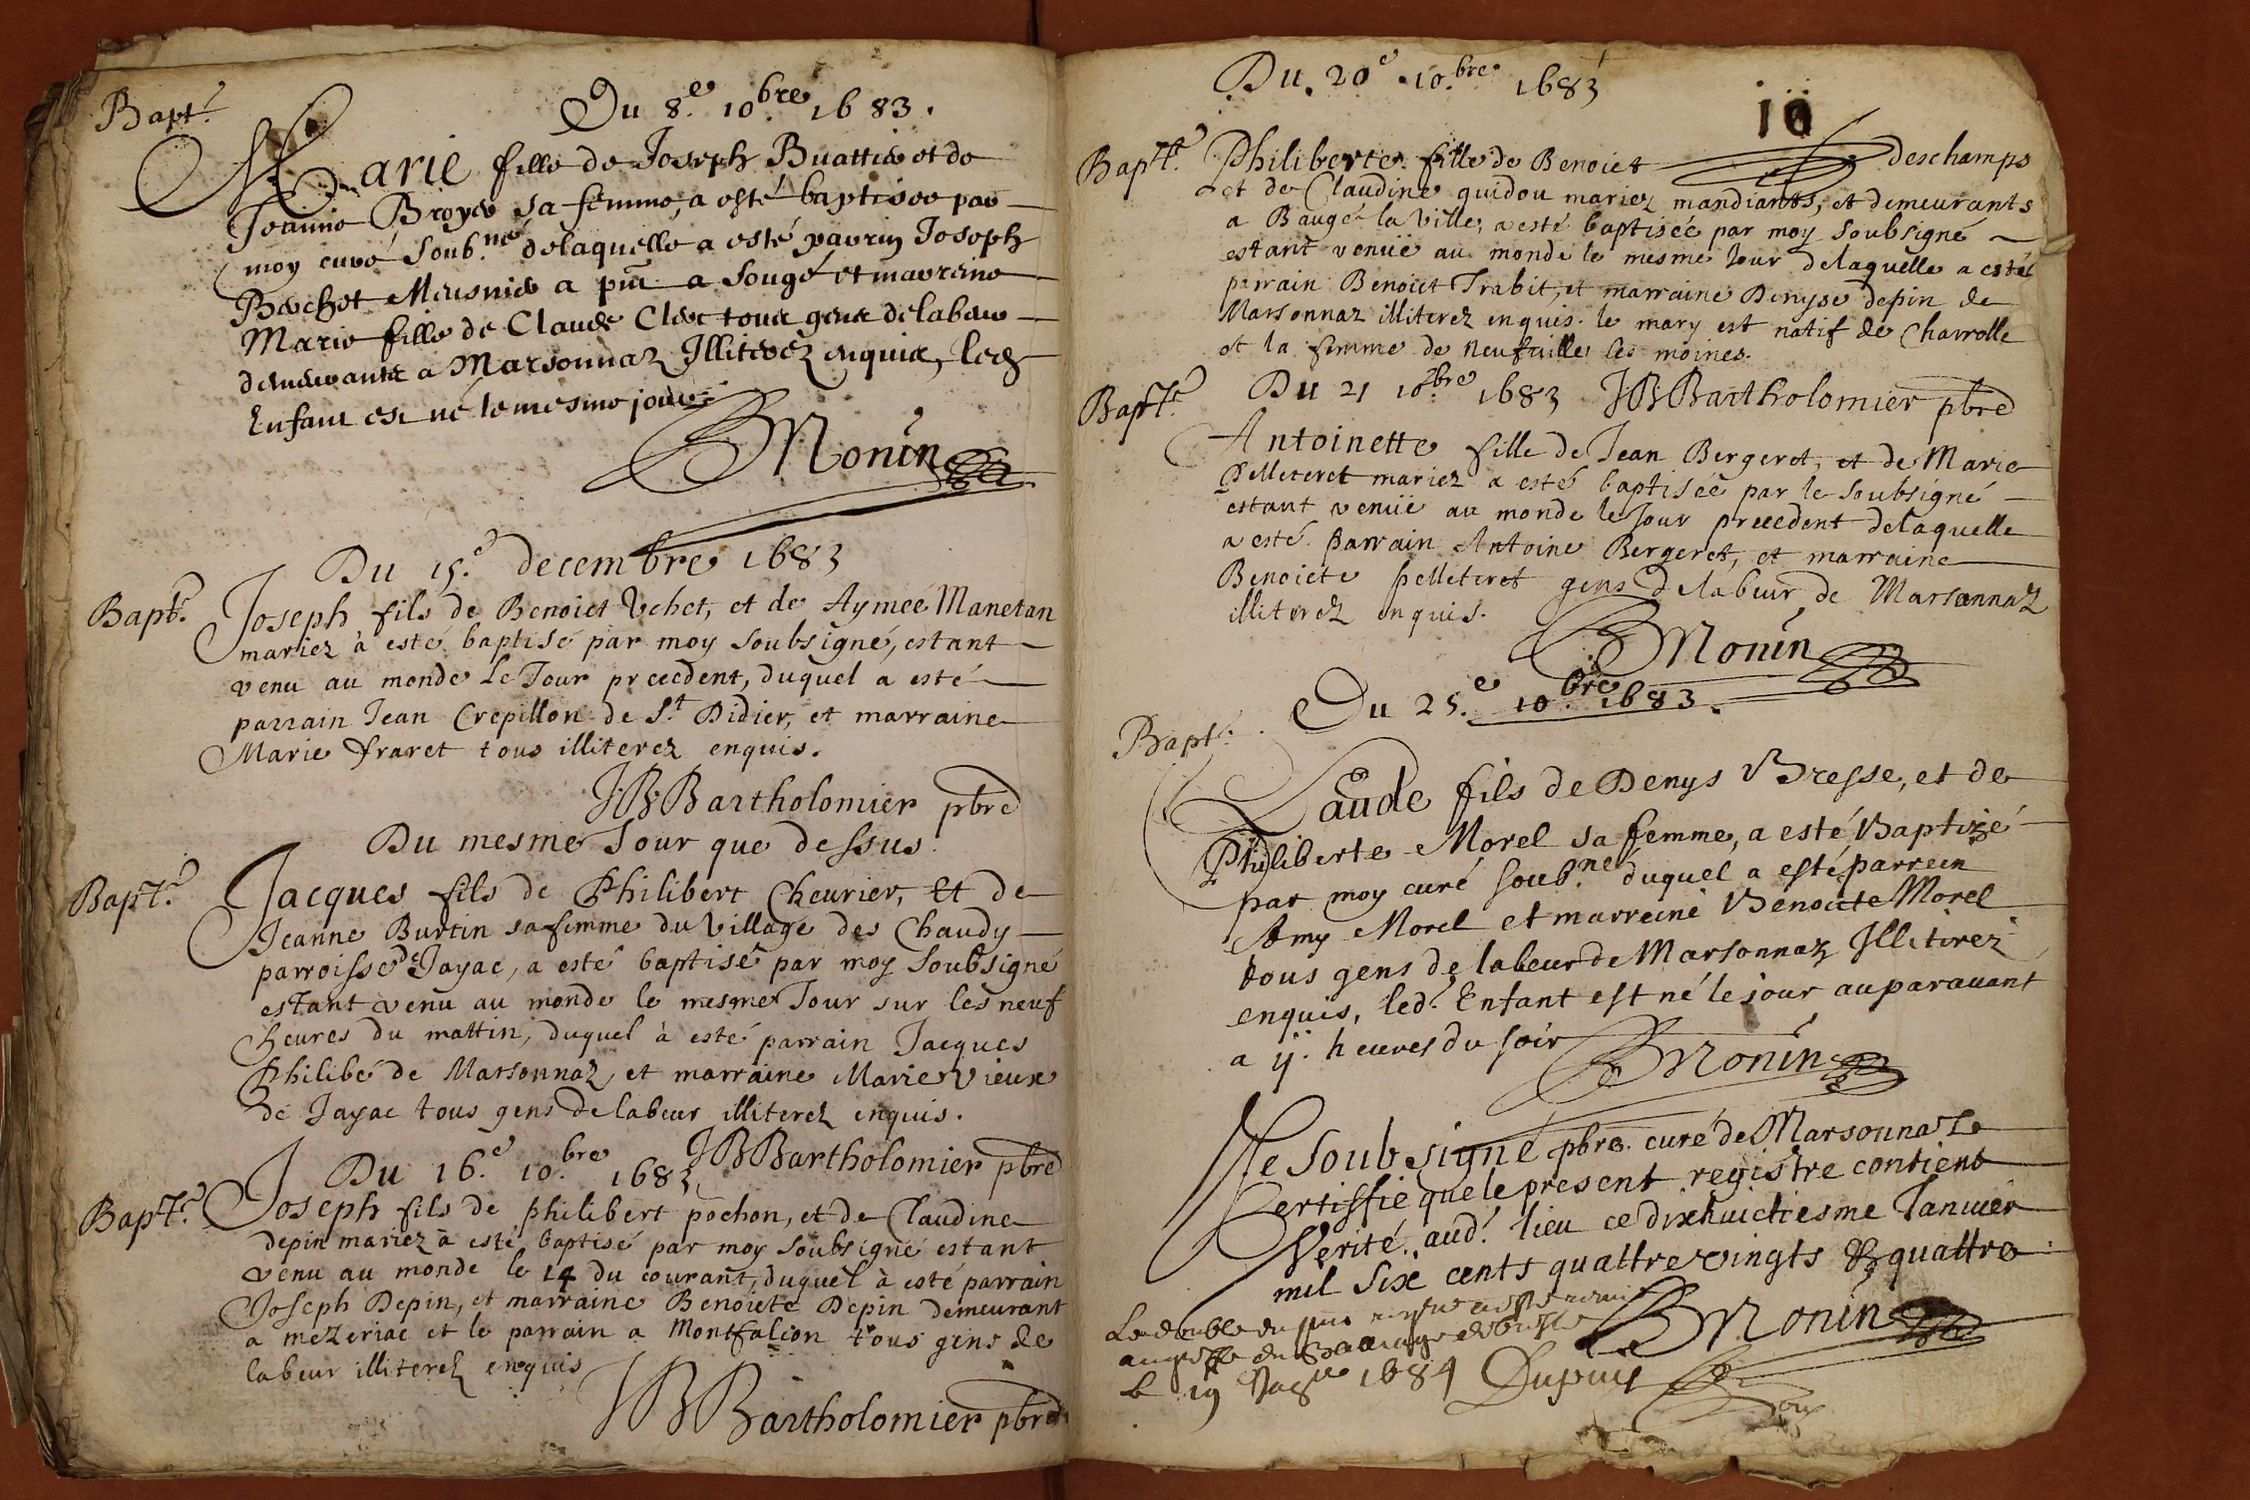 Bapt.e
Du 8.e 10.bre 1683.
Marie fille de Joseph Buattier et de
Jeanne Broyer sa femme, a esté baptisee par
moy curé soub.né delaquelle a esté parrin Joseph
Berchet Meusnier a a Sougé et marreine
Marie fille de Claude Clerc tous gens delabeur
demeurants a Marsonnaz Illiterez enquis, led
Enfant est né le mesme jour
Monin
Du 15.e decembre 1683
Bapt.e
Joseph fils de Benoict Uchet, et de Aymeé Manetan
mariez à esté baptisé par moy soubsigné, estant
venu au monde le Jour precedent, duquel a esté
parrain Jean Crepillon de S.t Didier, et marraine
Marie fraret tous illiterez enquis.
JBBartholomier pbre
Du mesme Jour que dessus
Bapt.e
Jacques fils de Philibert Cheurier, Et de
Jeanne Burtin sa femme du Village des Chaudy
parroisse de Jayac, a esté baptisé par moy Soubsigné
estant venu au monde le mesme Jour sur les neuf
heures du mattin, duquel à esté parrain Jacques
Philibé de Marsonnaz, et marraine Marie vieux
de Jayac tous gens delabeur illiterez enquis.
JBBartholomier pbre
Du 16.e 10.bre 1683
Bapt.e
Joseph fils de philibert pochon, et de Claudine
depin mariez à esté baptisé par moy Soubsigné estant
venu au monde le 14 du courant, duquel à esté parrain
Joseph Depin, et marraine Benoiete Depin demeurant
a mezeriac et le parrain a Montfalcon tous gens de
labeur illiterez enquis
JBBartholomier pbre
Du. 20e .10.bre 1683
10
Bapt.e
Philiberte fille de Benoict deschamps
et de Claudine guidou mariez mandiants, et demeurants
a Baugé la Ville, a esté baptisée par moy Soubsigné
estant venüe au monde le mesme Jour delaquelle a esté
parrain Benoict Trabit, et marraine Denyse depin de
Marsonnaz illiterez enquis. le mary est natif de Chavrolle
et la femme de Neufville les moines.
Du 21 10.bre 1683 JBBartholomier pbre
Bapt.e
Antoinette fille de Jean Bergeret, et de Marie
Pelleteret mariez a esté baptiseé par le Soubsigné
estant venüe au monde le Jour precedent delaquelle
a esté parrain Antoine Bergeret, et marraine
Benoiete pelleteret gens delabeur de Marsonnaz
illiterez enquis.
Monin
Du 25.e 10.bre 1683.
Bapt.e
Claude fils de Denys Bresse, et de
Philiberte Morel sa femme, a esté Baptizé
par moy curé soub.né duquel a esté parrein
Amy Morel et marreine Benoicte Morel
tous gens de labeur de Marsonnaz Illitirez
enquis, led. Enfant est né le jour auparauant
a ij. heures du soir
Monin
Je Soubsigné pbre. curé de Marsonnaz
Certiffie que le present registre contient
Verité. aud. lieu ce dixhuictiesme Januier
mil six cents quattre vingts & quattre
Monin
Le double du registre a esté remis
au greffe du Baillage de bresse
le 19 1684 Dupuis